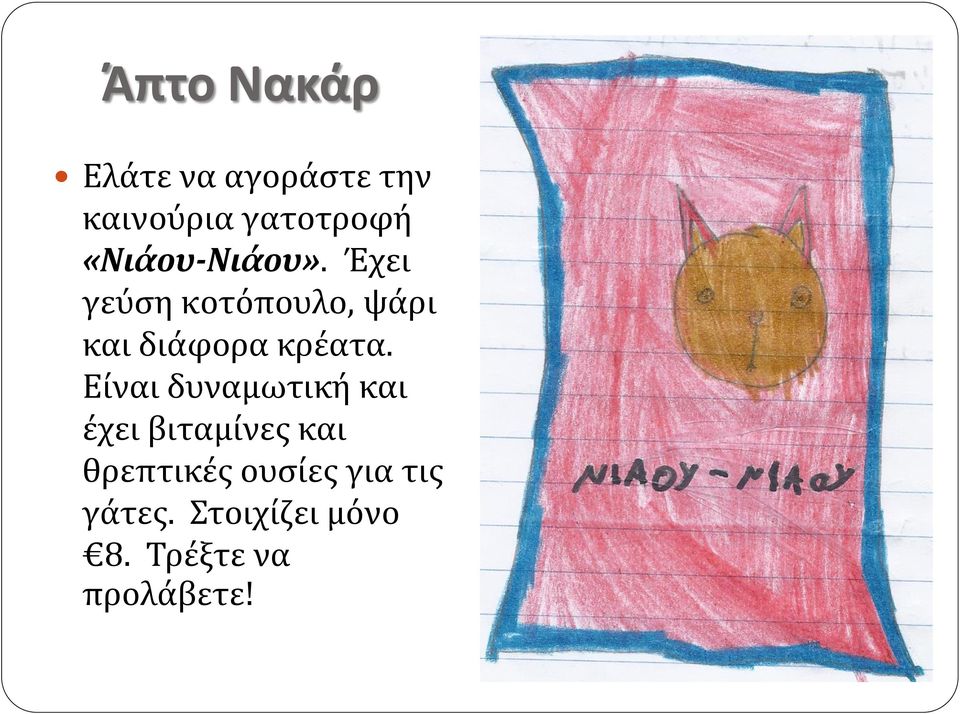 Άπτο Νακάρ
• Ελάτε να αγοράστε την
καινούρια γατοτροφή
«Νιάου-Νιάου». Έχει
γεύση κοτόπουλο, ψάρι
και διάφορα κρέατα.
Είναι δυναμωτική και
έχει βιταμίνες και
θρεπτικές ουσίες για τις
γάτες. Στοιχίζει μόνο
€8. Τρέξτε να
προλάβετε!
ΝΙΑΟΥ - ΝΙΑΟΥ